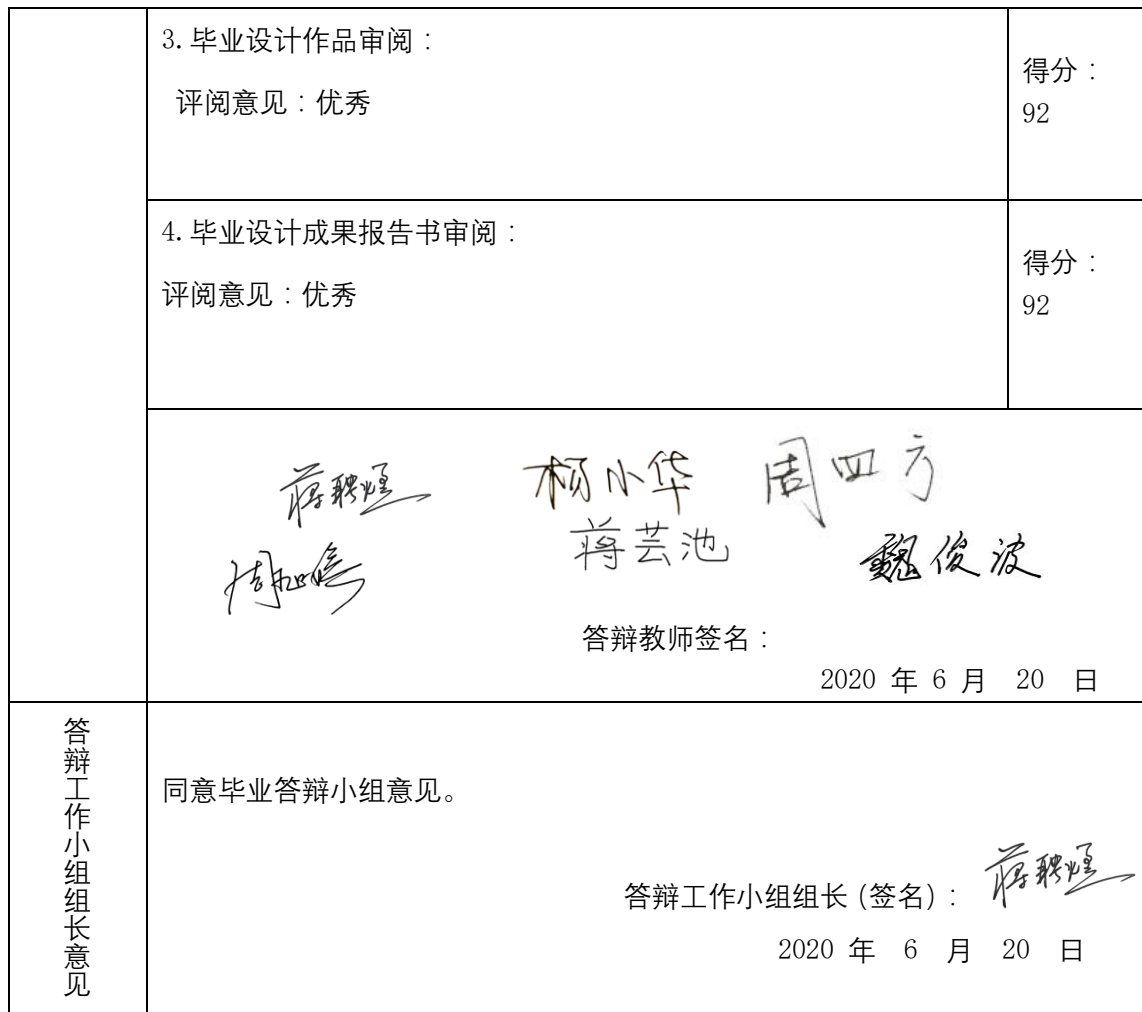 3.毕业设计作品审阅：
评阅意见：优秀
得分：
92
4.毕业设计成果报告书审阅：
评阅意见：优秀
得分：
92
蒋聘煌 杨小华 周四方
蒋芸池 魏俊波
答辩教师签名：
2020 年 6 月 20 日
答辩工作小组组长意见
同意毕业答辩小组意见。
答辩工作小组组长（签名）： 蒋聘煌
2020 年 6 月 20 日